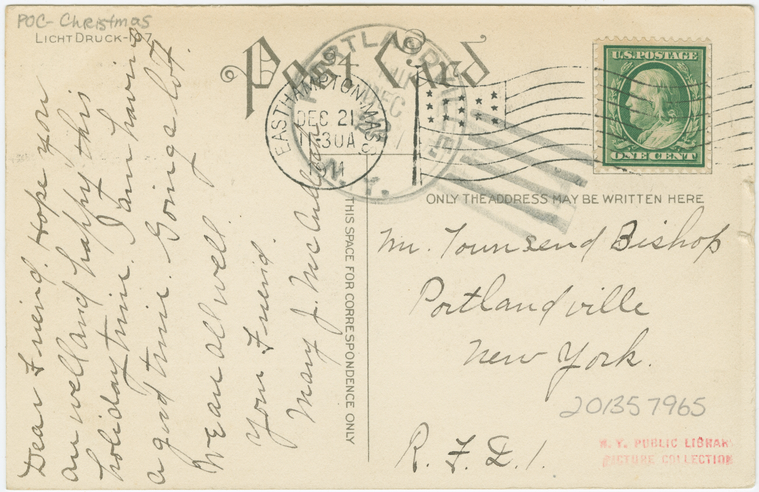 POC- Christmas
LICHTDRUCK-N 7.
Post Card
U.S. POSTAGE
ONE CENT
EASTHAMPTON MASS
DEC 21
11-30A
1911
N.Y.
ONLY THE ADDRESS MAY BE WRITTEN HERE
THIS SPACE FOR CORRESPONDENCE ONLY
Dear Friend. Hope you
are well and happy this
holiday time. I am having
a good time. Going a lot.
We are all well.
Your Friend.
Mary J.
Mr. Townsend Bishop
Portlandville
New York.
R.F.D. 1.
201357965
N. Y. PUBLIC LIBRARY
PICTURE COLLECTION